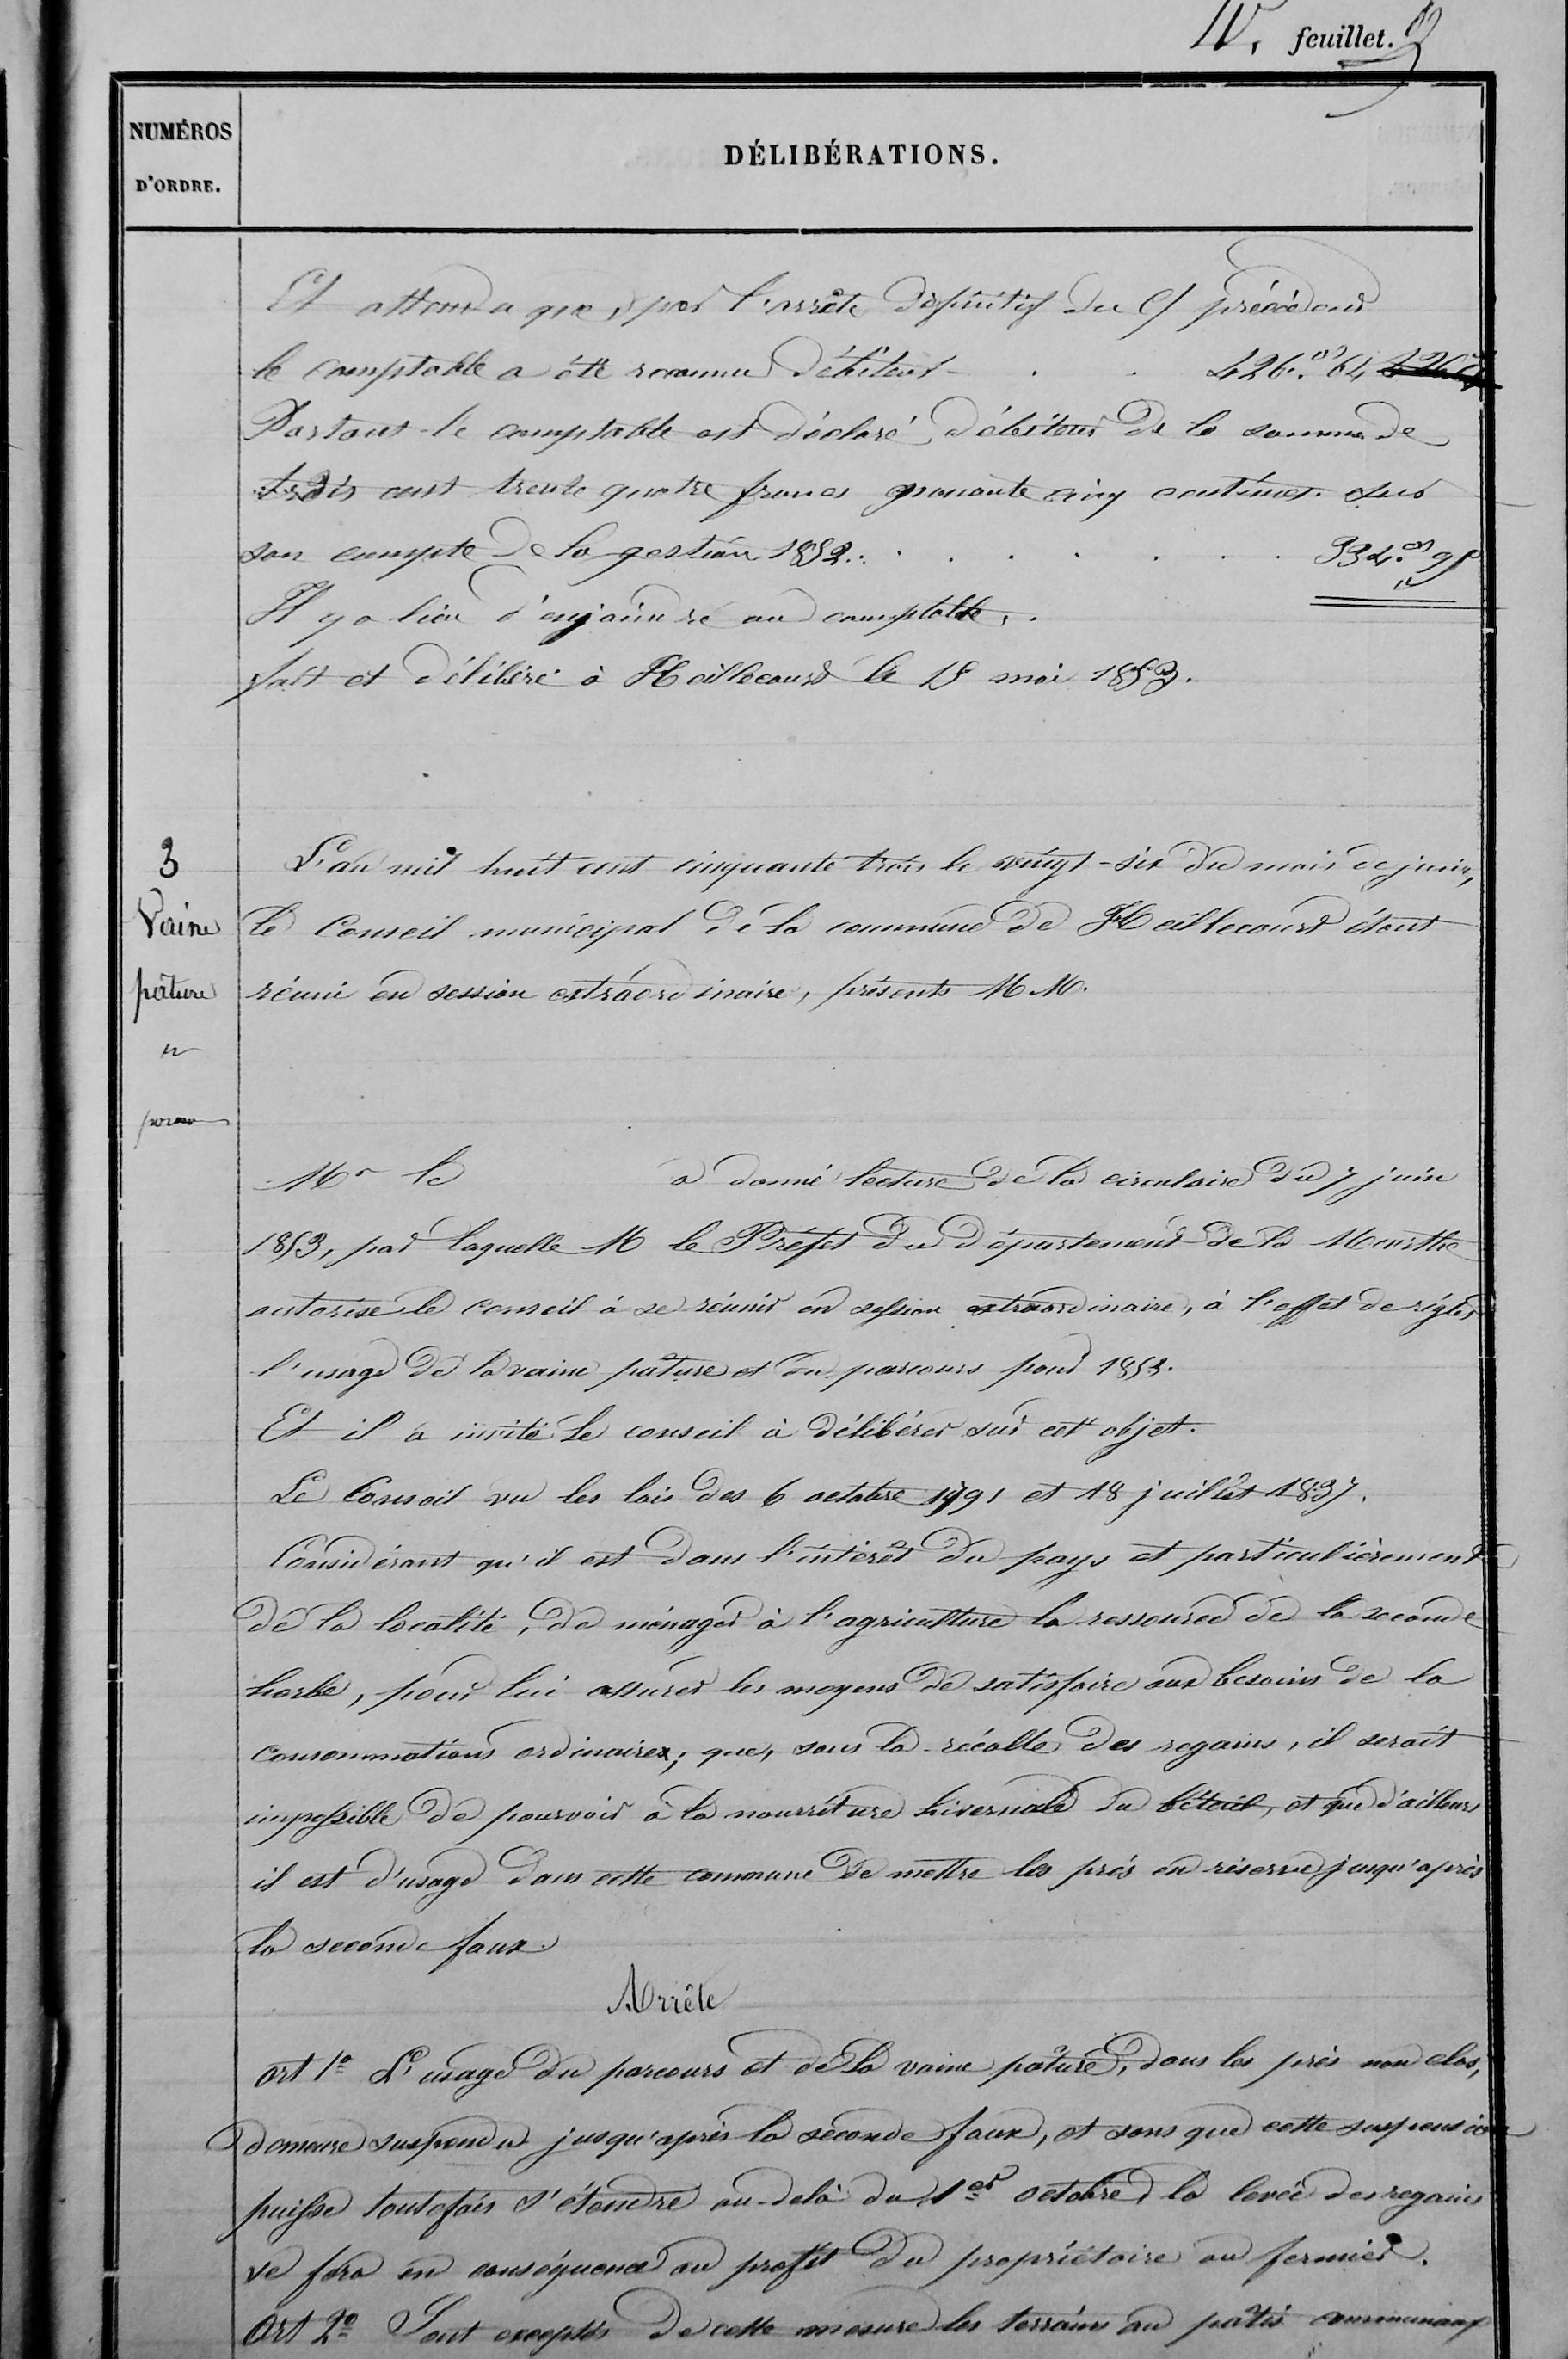 IV. feuillet.
NUMÉROS
D'ORDRE.
DÉLIBÉRATIONS.
Et attendu que, par l'arrêté définitif du Cj précédent
le comptable a été reconnu débiteur . . 426. 64
Partant le comptable est déclaré débiteur de la somme de
trois cent trente quatre francs centimes. sur
son compte de la gestion 1852. . . . . . . 334.
Il y a lieu d'enjoindre au comptable.
fait et délibéré à Heillecourt le 15 mai 1853.
3
Vaine
pature
L'an mil huit cent cinquante trois le vingt-six du mois de juin,
le Conseil municipal de la commune de Heillecourt étant
réuni en session extraordinaire, présents MM.
Mr le a donné lecture de la circulaire du 7 juin
1853, par laquelle M le Préfet du département de la Meurthe
autorise le conseil à se réunir en session extraordinaire, à l'effet de régler
l'usage de la vaine pâture et du parcours pour 1853.
Et il a invité le conseil à délibérer sur cet objet.
Le Conseil vu les lois des 6 octobre 1791 et 18 juillet 1837.
Considérant qu'il est dans l'intérêt du pays et particulièrement
de la localité, de ménager à l'agriculture la ressource de la seconde
herbe, pour lui assurer les moyens de satisfaire aux besoins de la
consommations ordinaires; que, sans la récolte des regains, il serait
impossible de pourvoir à la nourriture hivernale du bétail, et que d'ailleurs
il est d'usage dans cette commune de mettre les prés en réserve jusqu'après
la seconde faux.
Arrête
art 1o L'usage du parcours et de la vaine pâture, dans les près non clos,
demeure suspendu jusqu'après la seconde faux, et sans que cette suspension
puisse toutefois s'étendre au-delà du 1er octobre, la levée des regains
se fera en conséquence au profit du propriétaire ou fermier.
Art 2o Sont exceptés de cette mesure les terrains au pâtis communaux